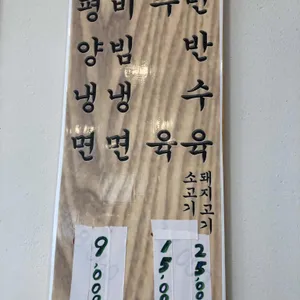 평양냉면
비빔냉면
수육
반반수육
돼지고기
소고기
9,000
15,000
25,00